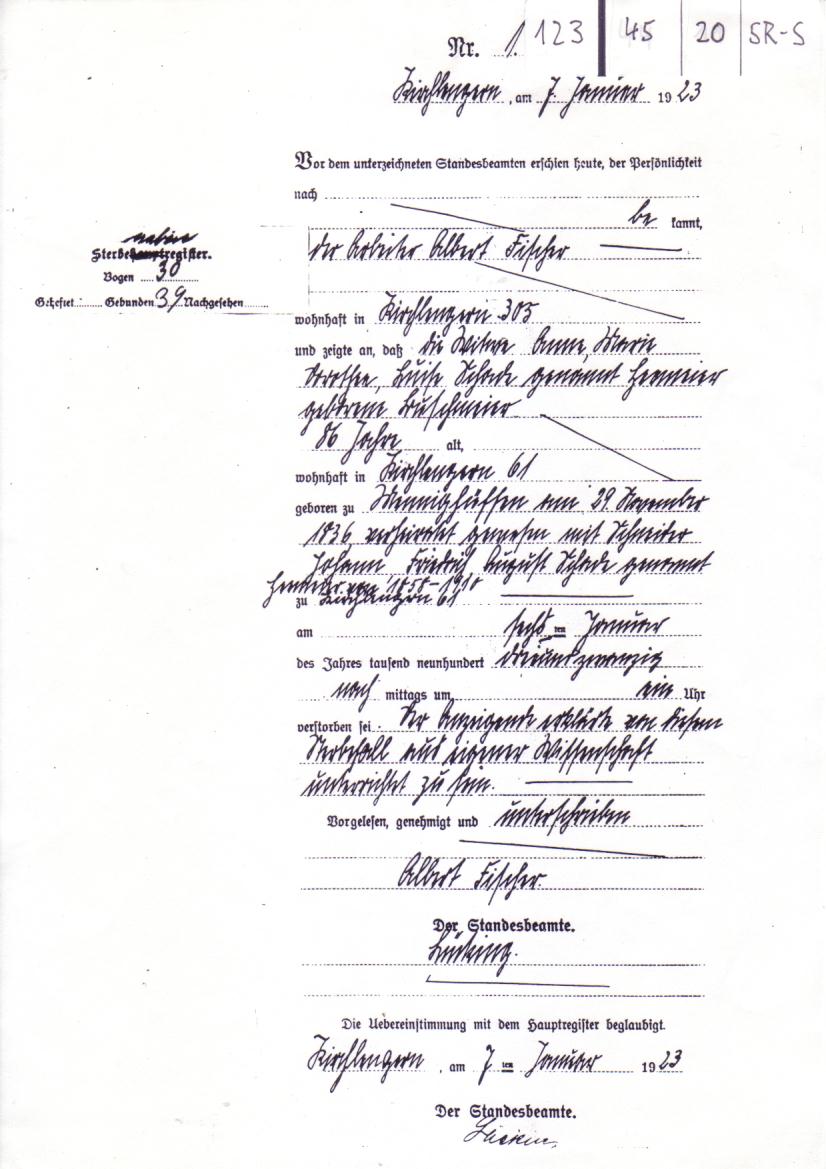 Nr. 1. 123 45 20 SR-S
Kirchlengern, am 7. Januar 1923
Vor dem unterzeichneten Standesbeamten erschien heute, der Persönlichkeit
nach
be kannt,
der Arbeiter Albert Fischer
neben
Sterbehauptregister.
Bogen 30
Geheftet Gebunden 39 Nachgesehen
wohnhaft in Kirchlengern 305
und zeigte an, daß die Witwe Anne, Marie
Dorothee, Luise Schade genannt Henmeier
geborene Buschmeier
86 Jahre alt,
wohnhaft in Kirchlengern 61
geboren zu Mennighüffen am 29. November
1836, verheiratet gewesen mit Schneider
Johann Friedrich August Schade genannt
Henmeier von 1858-1910
zu Kirchlengern 61
am sechsten Januar
des Jahres tausend neunhundert dreiundzwanzig
nach mittags um ein Uhr
verstorben sei. Der Anzeigende erklärte von diesem
Sterbefall aus eigener Wissenschaft
unterrichtet zu sein.
Vorgelesen, genehmigt und unterschrieben
Albert Fischer.
Der Standesbeamte.
Die Uebereinstimmung mit dem Hauptregister beglaubigt.
Kirchlengern, am 7ten Januar 1923
Der Standesbeamte.